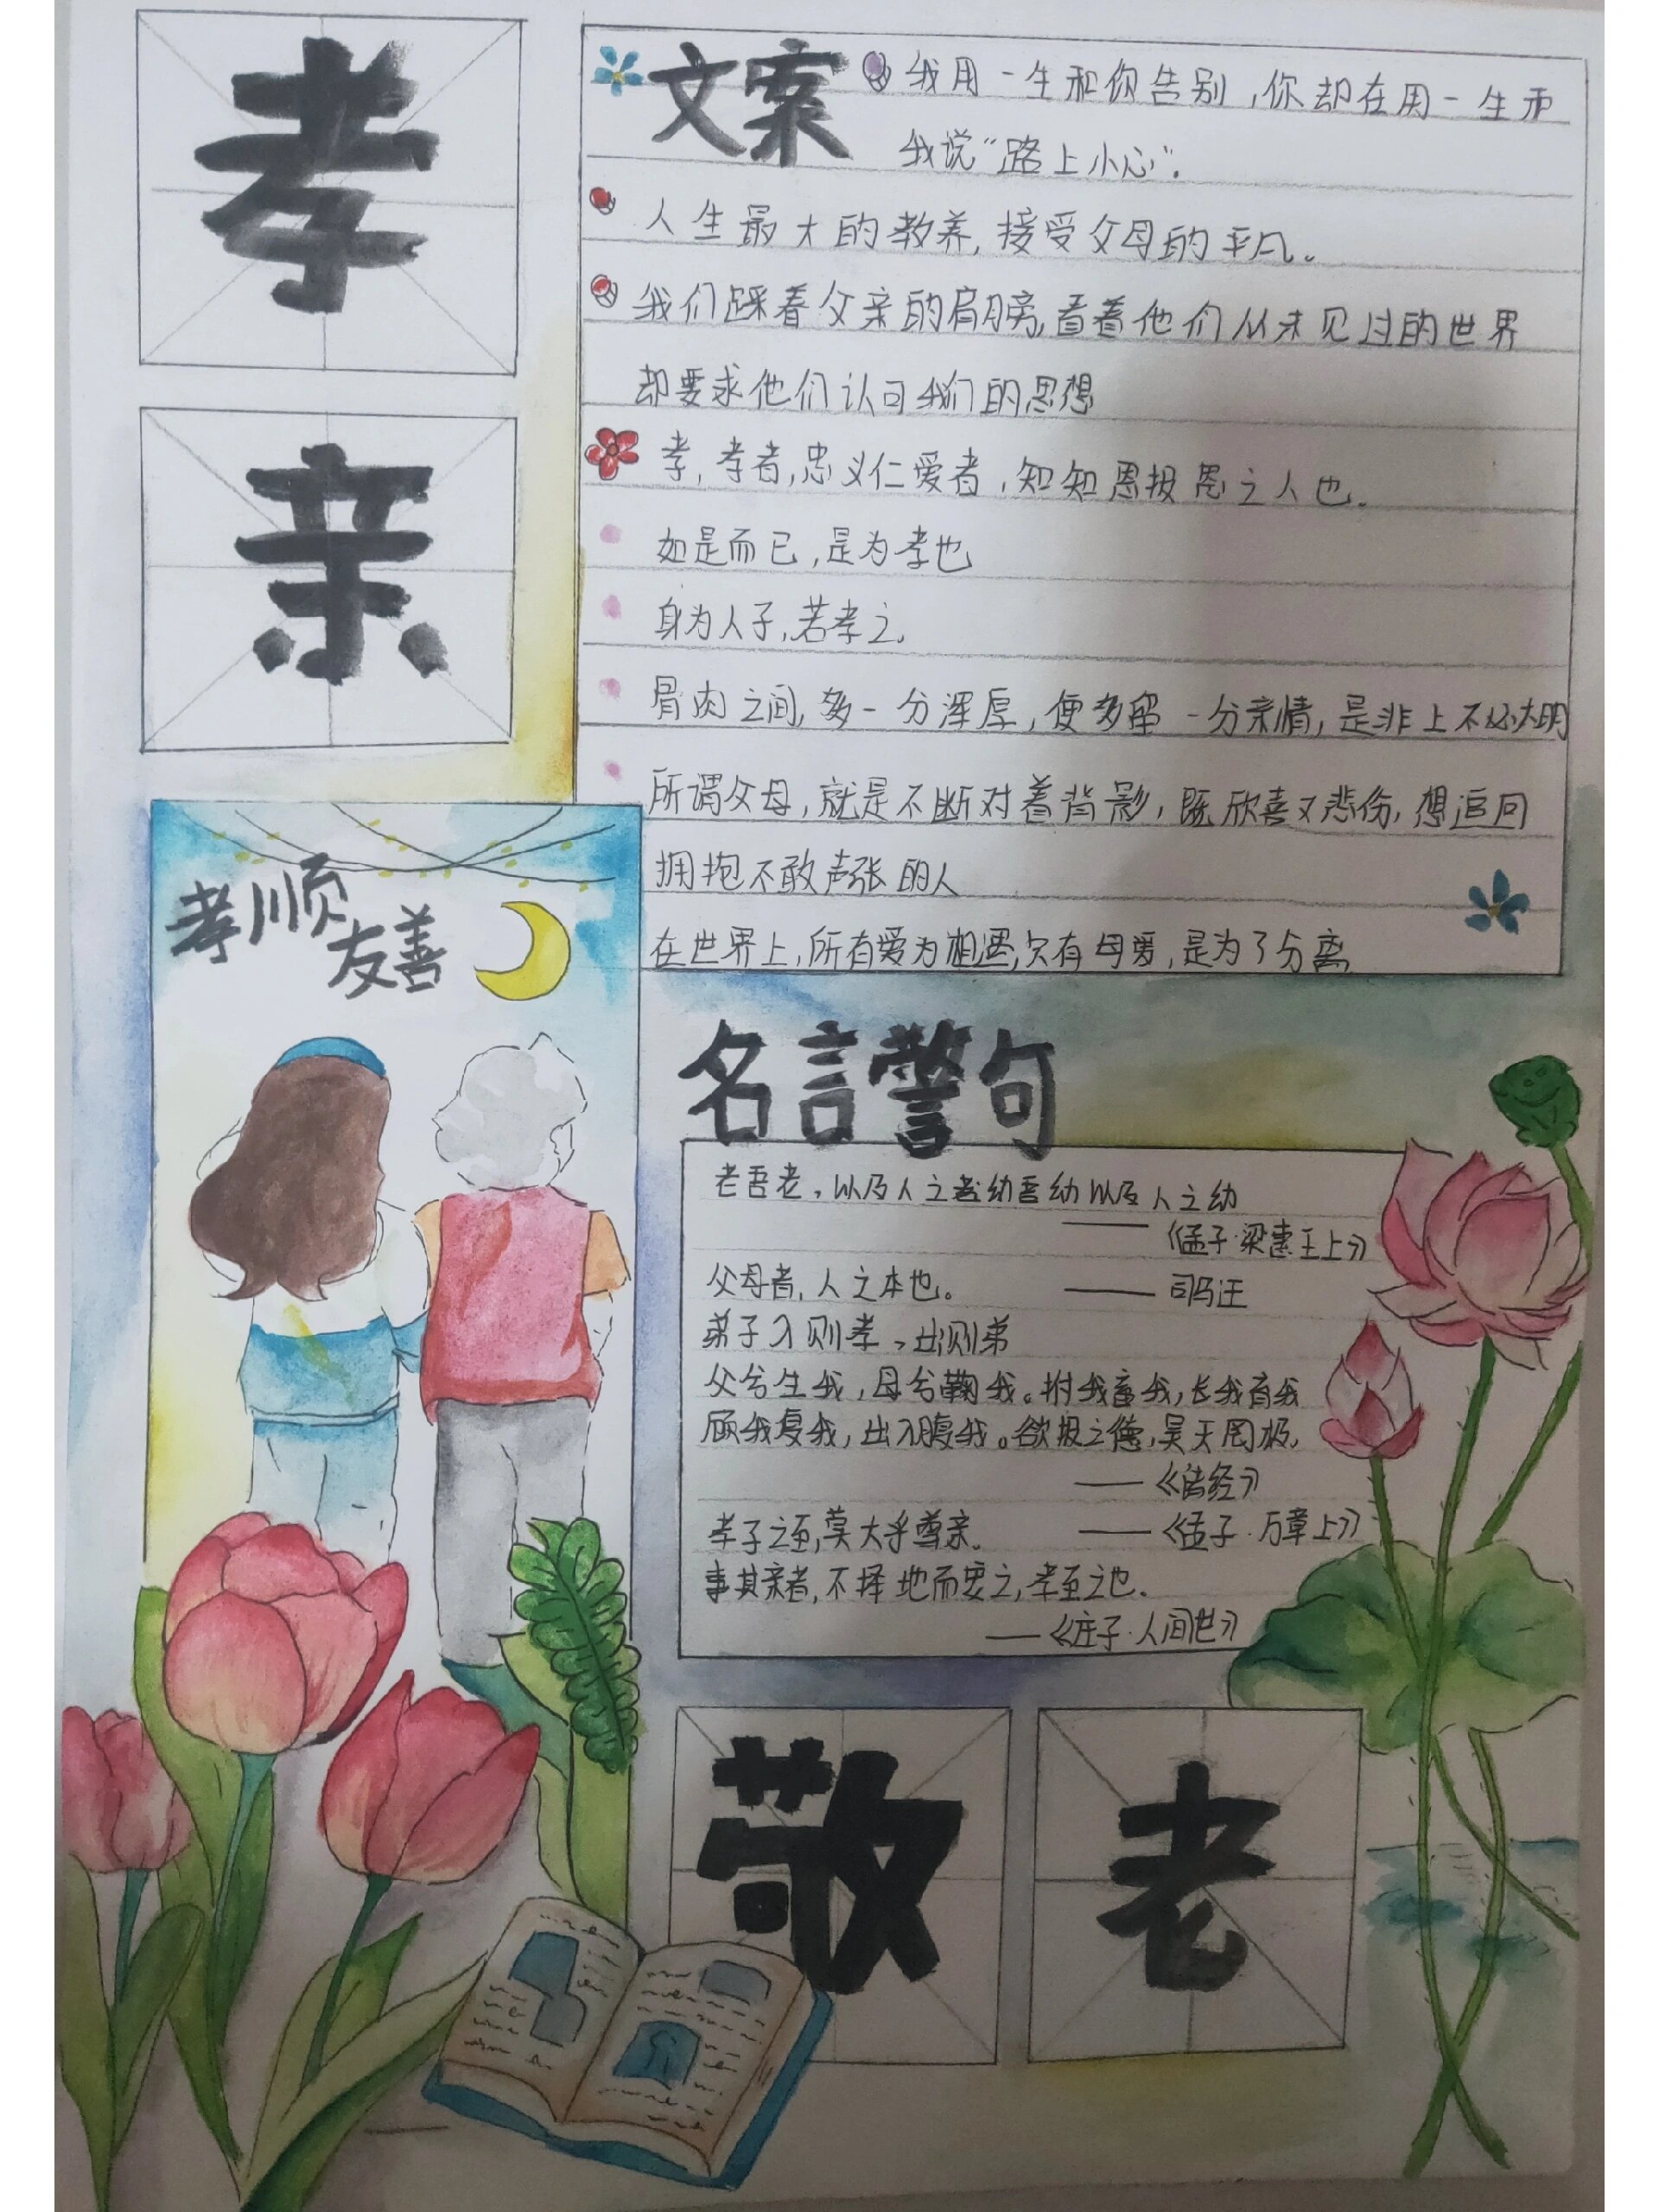 孝
亲
文案
我用一生和你告别,你却在用一生和
我说“路上小心”.
人生最大的教养,接受父母的平凡。
我们踩着父亲的肩膀,看着他们从未见过的世界
却要求他们认可我们的思想
孝,孝者,忠义仁爱者,知知恩报恩之人也.
如是而已,是为孝也
身为人子,若孝之,
骨肉之间,多一分浑厚,便多留一分亲情,是非上不必太明
所谓父母,就是不断对着背影,既欣喜又悲伤,想追回
拥抱不敢声张的人
在世界上,所有爱为相遇,只有母爱,是为了分离
孝顺
友善
名言警句
老吾老,以及人之老幼吾幼以及人之幼
——《孟子·梁惠王上》
父母者,人之本也。——司马迁
弟子入则孝,出则弟
父兮生我,母兮鞠我。拊我畜我,长我育我
顾我复我,出入腹我。欲报之德,昊天罔极,
——《诗经》
孝子之至,莫大乎尊亲。——《孟子·万章上》
事其亲者,不择地而安之,孝至之也.
——《庄子·人间世》
敬老